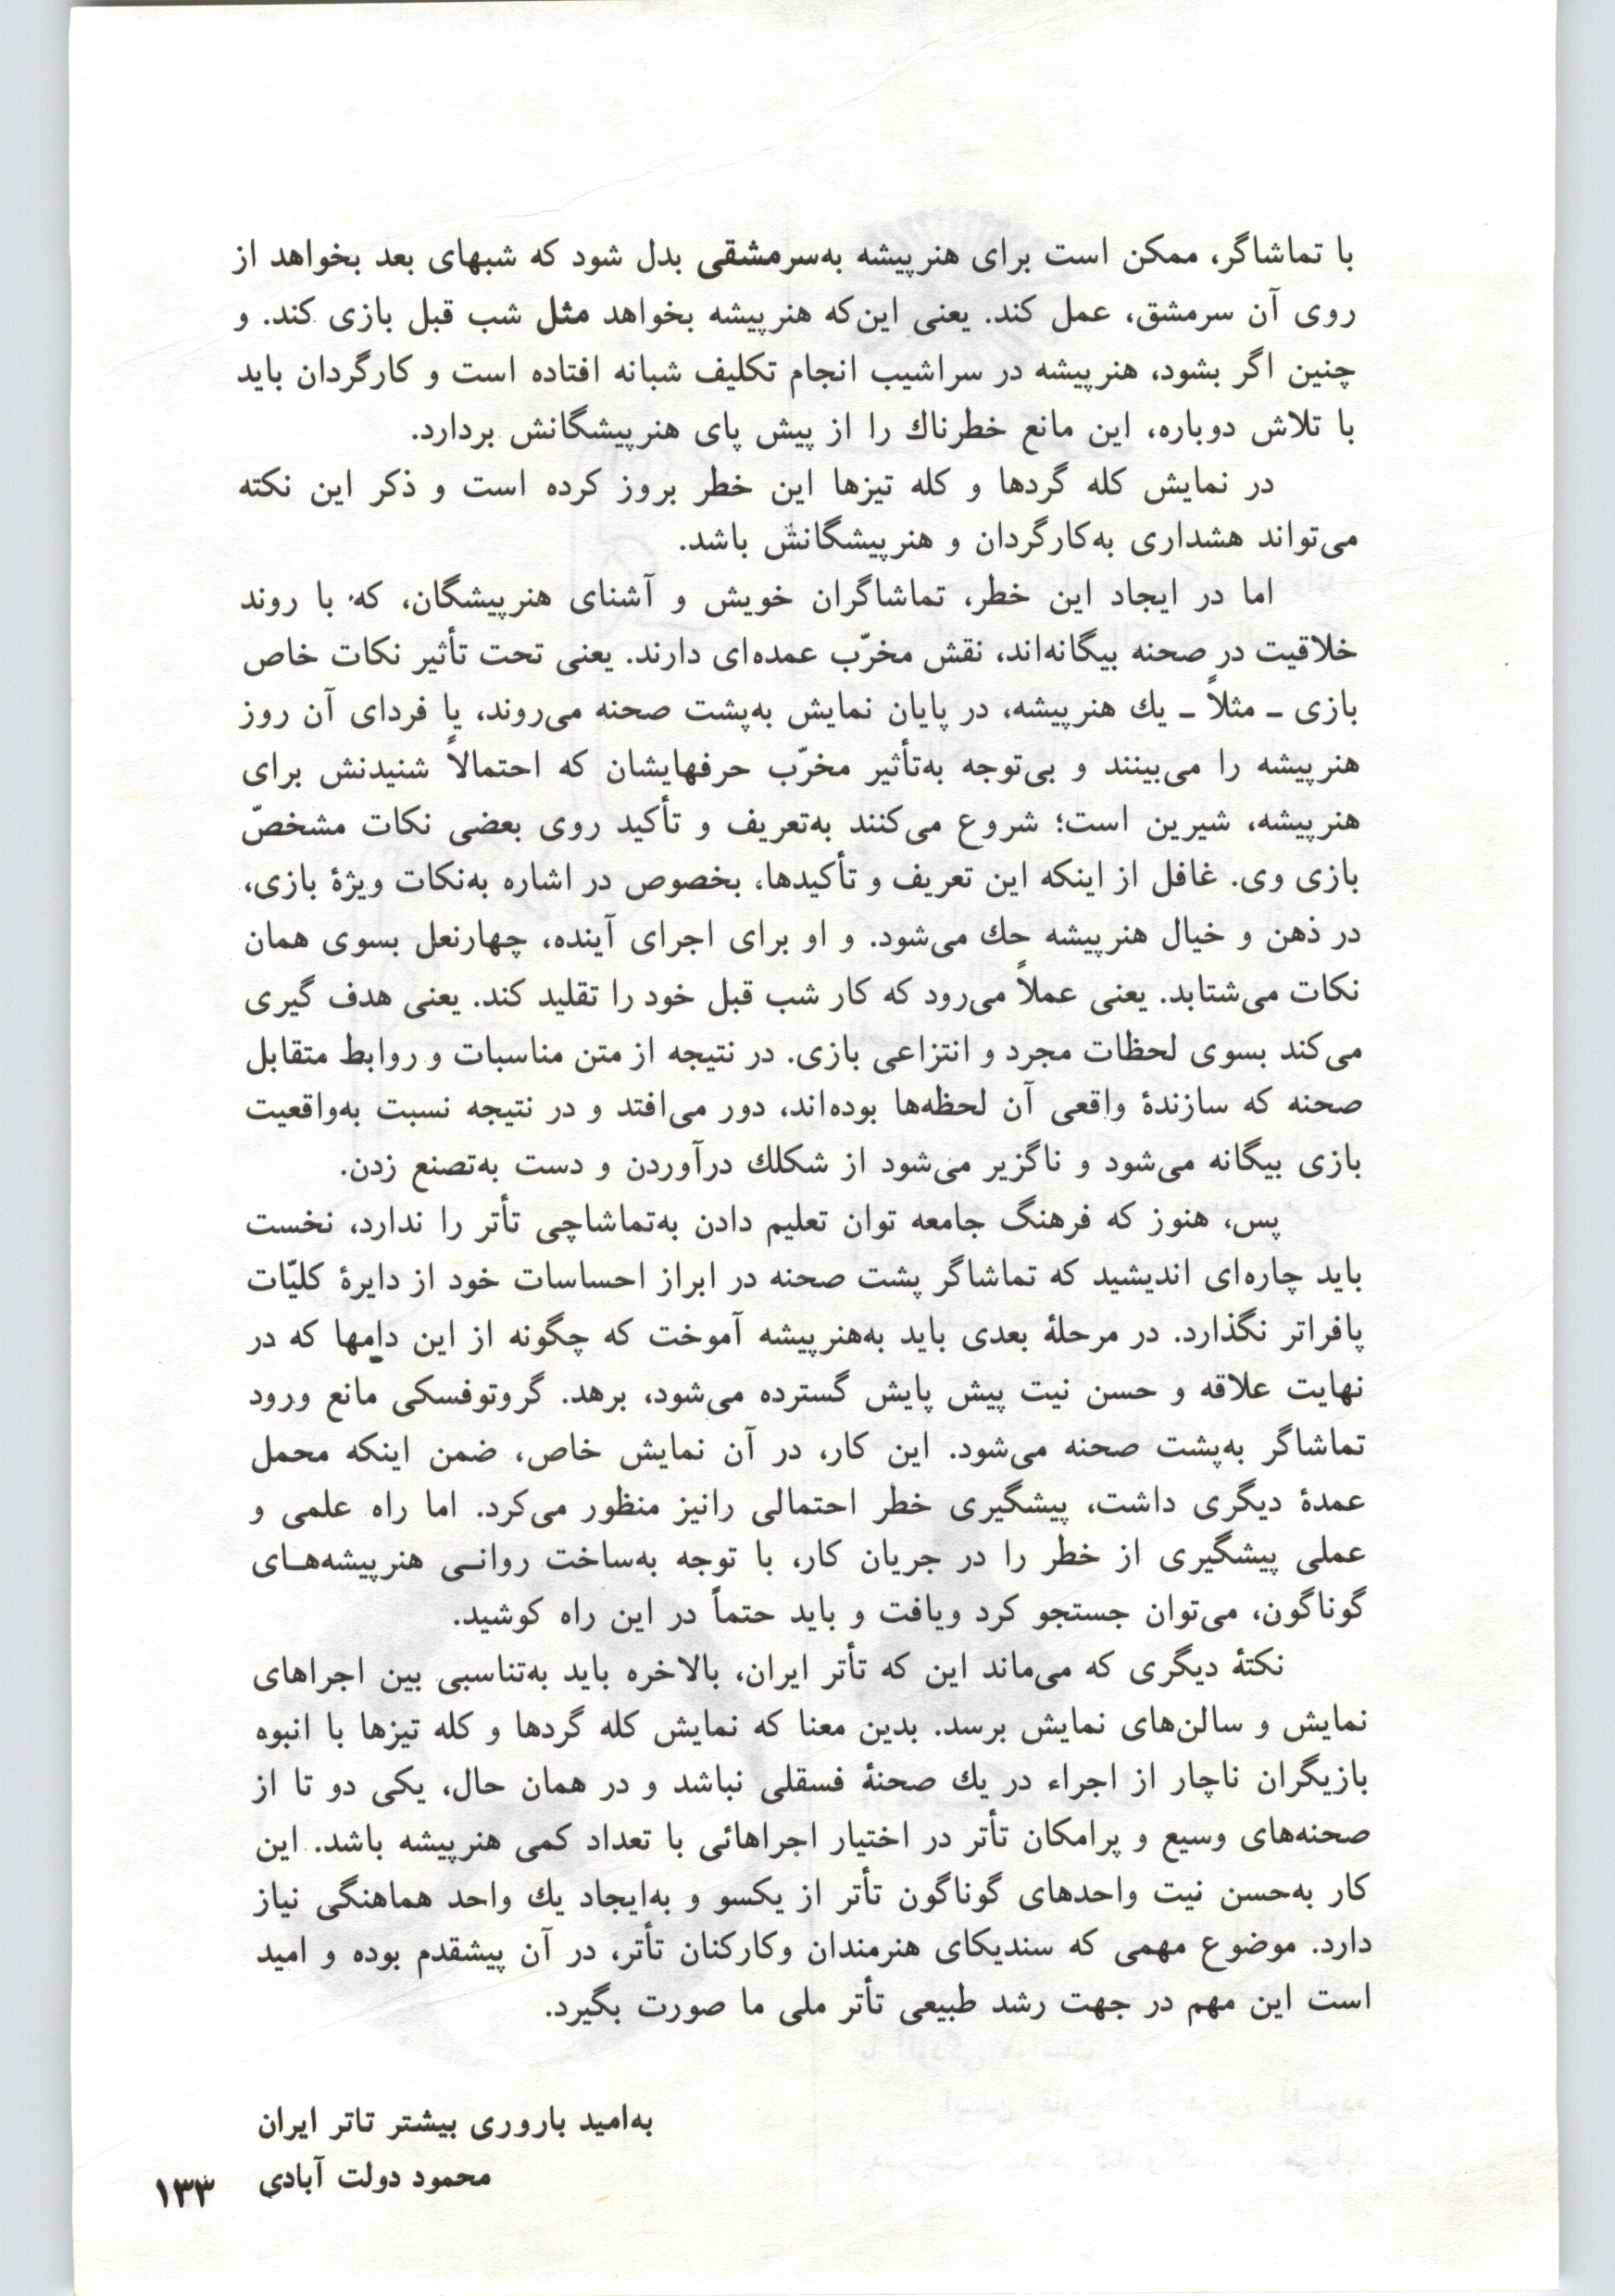 با تماشاگر، ممکن است برای هنرپیشه به‌سرمشقی بدل شود که شبهای بعد بخواهد از
روی آن سرمشق، عمل کند. یعنی این‌که هنرپیشه بخواهد مثل شب قبل بازی کند. و
چنین اگر بشود، هنرپیشه در سراشیب انجام تکلیف شبانه افتاده است و کارگردان باید
با تلاش دوباره، این مانع خطرناك را از پیش پای هنرپیشگانش بردارد.
در نمایش کله گردها و کله تیزها این خطر بروز کرده است و ذکر این نکته
می‌تواند هشداری به‌کارگردان و هنرپیشگانش باشد.
اما در ایجاد این خطر، تماشاگران خویش و آشنای هنرپیشگان، که با روند
خلاقیت در صحنه بیگانه‌اند، نقش مخرّب عمده‌ای دارند. یعنی تحت تأثیر نکات خاص
بازی ـ مثلاً ـ یك هنرپیشه، در پایان نمایش به‌پشت صحنه می‌روند، یا فردای آن روز
هنرپیشه را می‌بینند و بی‌توجه به‌تأثیر مخرّب حرفهایشان که احتمالاً شنیدنش برای
هنرپیشه، شیرین است؛ شروع می‌کنند به‌تعریف و تأکید روی بعضی نکات مشخصّ
بازی وی. غافل از اینکه این تعریف و تأکیدها، بخصوص در اشاره به‌نکات ویژۀ بازی،
در ذهن و خیال هنرپیشه حك می‌شود. و او برای اجرای آینده، چهارنعل بسوی همان
نکات می‌شتابد. یعنی عملاً می‌رود که کار شب قبل خود را تقلید کند. یعنی هدف گیری
می‌کند بسوی لحظات مجرد و انتزاعی بازی. در نتیجه از متن مناسبات و روابط متقابل
صحنه که سازندۀ واقعی آن لحظه‌ها بوده‌اند، دور می‌افتد و در نتیجه نسبت به‌واقعیت
بازی بیگانه می‌شود و ناگزیر می‌شود از شکلك درآوردن و دست به‌تصنع زدن.
پس، هنوز که فرهنگ جامعه توان تعلیم دادن به‌تماشاچی تأتر را ندارد، نخست
باید چاره‌ای اندیشید که تماشاگر پشت صحنه در ابراز احساسات خود از دایرۀ کلیّات
پافراتر نگذارد. در مرحلۀ بعدی باید به‌هنرپیشه آموخت که چگونه از این دامها که در
نهایت علاقه و حسن نیت پیش پایش گسترده می‌شود، برهد. گروتوفسکی مانع ورود
تماشاگر به‌پشت صحنه می‌شود. این کار، در آن نمایش خاص، ضمن اینکه محمل
عمدۀ دیگری داشت، پیشگیری خطر احتمالی رانیز منظور می‌کرد. اما راه علمی و
عملی پیشگیری از خطر را در جریان کار، با توجه به‌ساخت روانـی هنرپیشه‌هـای
گوناگون، می‌توان جستجو کرد ویافت و باید حتماً در این راه کوشید.
نکتۀ دیگری که می‌ماند این که تأتر ایران، بالاخره باید به‌تناسبی بین اجراهای
نمایش و سالن‌های نمایش برسد. بدین معنا که نمایش کله گردها و کله تیزها با انبوه
بازیگران ناچار از اجراء در یك صحنۀ فسقلی نباشد و در همان حال، یکی دو تا از
صحنه‌های وسیع و پرامکان تأتر در اختیار اجراهائی با تعداد کمی هنرپیشه باشد. این
کار به‌حسن نیت واحدهای گوناگون تأتر از یکسو و به‌ایجاد یك واحد هماهنگی نیاز
دارد. موضوع مهمی که سندیکای هنرمندان وکارکنان تأتر، در آن پیشقدم بوده و امید
است این مهم در جهت رشد طبیعی تأتر ملی ما صورت بگیرد.
به‌امید باروری بیشتر تاتر ایران
محمود دولت آبادی
۱۳۳